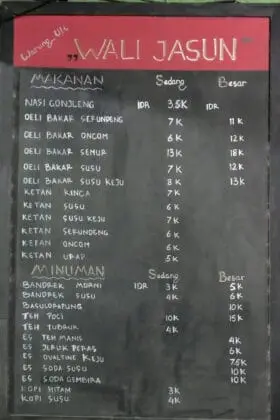 Warung
"WALI JASUN"
MAKANAN Sedang Besar
NASI GONJLENG IDR 3.5K IDR
OELI BAKAR SERUNDENG 7K 11K
OELI BAKAR ONCOM 6K 12K
OELI BAKAR SEMUR 13K 18K
OELI BAKAR SUSU 7K 12K
OELI BAKAR SUSU KEJU 8K 13K
KETAN KINCA 7K
KETAN SUSU 6K
KETAN SUSU KEJU 7K
KETAN SERUNDENG 6K
KETAN ONCOM 6K
KETAN URAP 5K
MINUMAN Sedang Besar
BANDREK MURNI IDR 3K 5K
BANDREK SUSU 4K 6K
10K
TEH POCI 10K 15K
TEH TUBRUK 4K
ES TEH MANIS 4K
ES JERUK PERAS 6K
ES OVALTINE KEJU 7.5K
ES SODA SUSU 10K
ES SODA GEMBIRA 10K
KOPI HITAM 3K
KOPI SUSU 4K